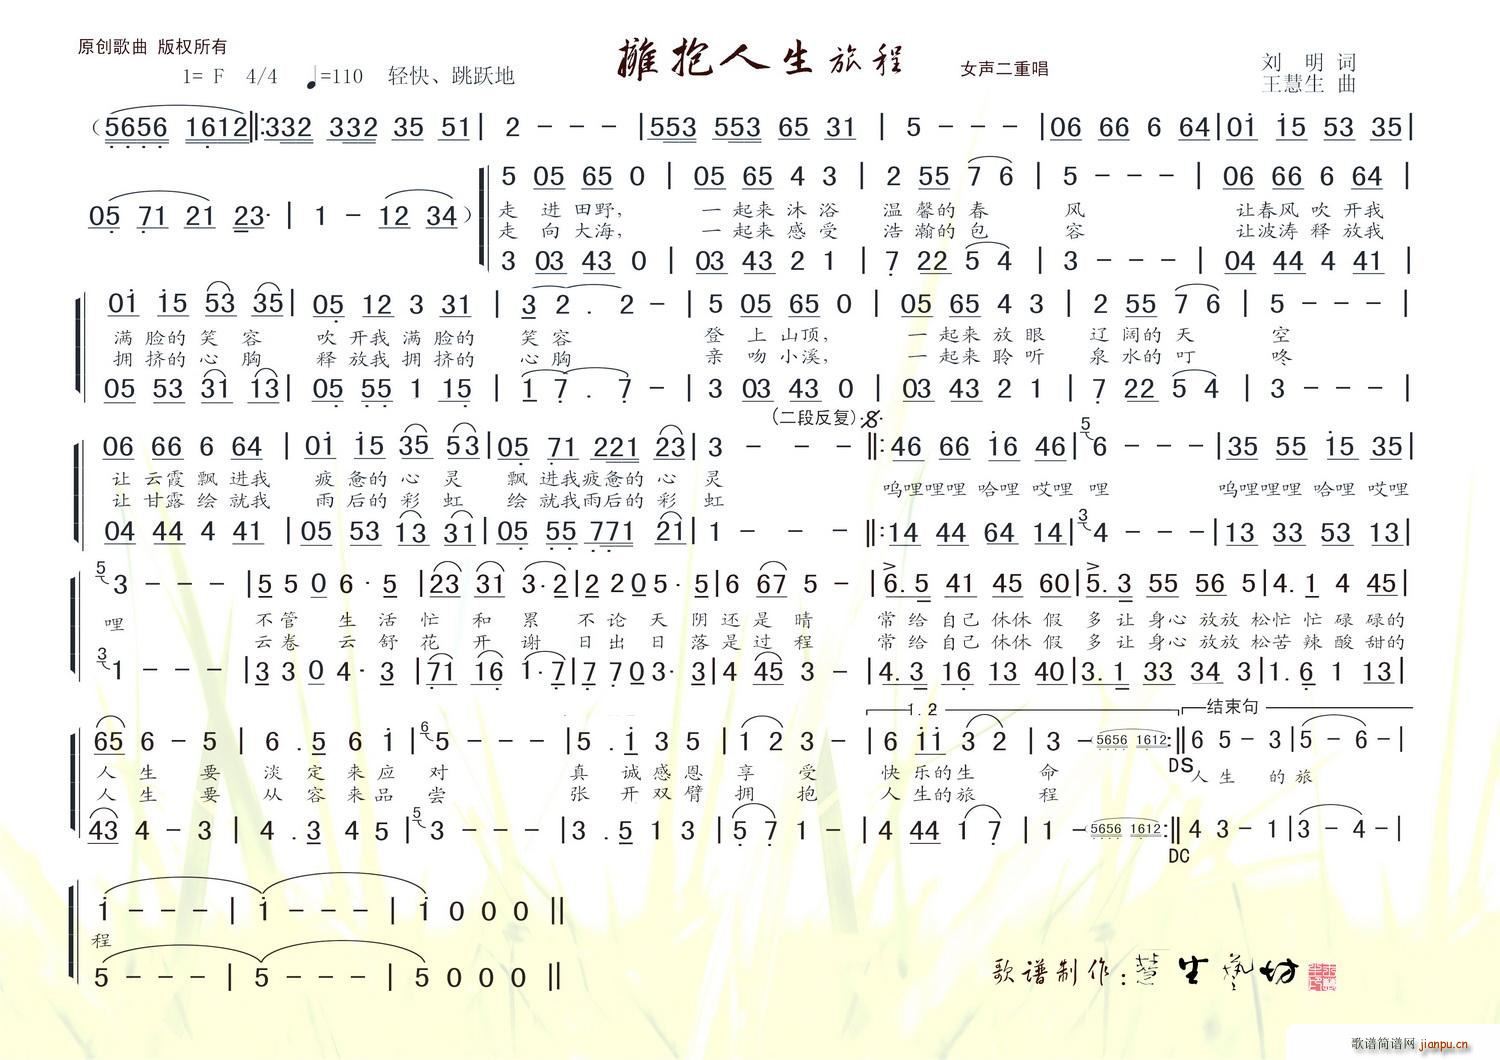 原创歌曲 版权所有
擁抱人生旅程
女声二重唱
刘 明 词
1= F 4/4 ♩=110 轻快、跳跃地
王慧生 曲
(5656 1612 ‖: 332 332 35 51 | 2 - - - | 553 553 65 31 | 5 - - - | 06 66 6 64 | 01 15 53 35 |
5 05 65 0 | 05 65 4 3 | 2 55 7 6 | 5 - - - | 06 66 6 64 |
05 71 21 23· | 1 - 12 34 )
走 进 田野, 一 起来 沐 浴 温 馨的 春 风 让春风 吹 开我
走 向 大海, 一 起来 感 受 浩 瀚的 包 容 让波涛 释 放我
3 03 43 0 | 03 43 2 1 | 7 22 5 4 | 3 - - - | 04 44 4 41 |
01 15 53 35 | 05 12 3 31 | 3 2 . 2 - | 5 05 65 0 | 05 65 4 3 | 2 55 7 6 | 5 - - - |
满 脸的 笑 容 吹 开我 满 脸的 笑 容 登 上 山顶, 一 起来 放 眼 辽 阔的 天 空
拥 挤的 心 胸 释 放我 拥 挤的 心 胸 亲 吻 小溪, 一 起来 聆 听 泉 水的 叮 咚
05 53 31 13 | 05 55 1 15 | 1 7 . 7 - | 3 03 43 0 | 03 43 2 1 | 7 22 5 4 | 3 - - - |
(二段反复)
06 66 6 64 | 01 15 35 53 | 05 71 221 23 | 3 - - - ‖: 46 66 16 46 | 5 6 - - - | 35 55 15 35 |
让 云霞 飘 进我 疲 惫的 心 灵 飘 进我疲惫的 心 灵
呜哩哩哩 哈哩 哎哩 哩 呜哩哩哩 哈哩 哎哩
让 甘露 绘 就我 雨 后的 彩 虹 绘 就我雨后的 彩 虹
04 44 4 41 | 05 53 13 31 | 05 55 771 21 | 1 - - - ‖: 14 44 64 14 | 3 4 - - - | 13 33 53 13 |
5 3 - - - | 5 5 0 6 · 5 | 23 31 3·2 | 2 2 0 5 · 5 | 6 67 5 - | 6.5 41 45 60 | 5.3 55 56 5 | 4.1 4 45 |
哩 不管 生 活 忙 和 累 不论 天 阴 还 是 晴 常 给 自己 休休 假 多 让 身心 放放 松忙 忙 碌 碌的
云卷 云 舒 花 开 谢 日出 日 落 是 过 程 常 给 自己 休休 假 多 让 身心 放放 松苦 辣 酸 甜的
3 1 - - - | 3 3 0 4 · 3 | 71 16 1·7 | 7 7 0 3 · 3 | 4 45 3 - | 4.3 16 13 40 | 3.1 33 34 3 | 1.6 1 13 |
1.2 结束句
65 6 - 5 | 6 . 5 6 1 | 6 5 - - - | 5 . 1 3 5 | 1 2 3 - | 6 11 3 2 | 3 - (5656 1612 :‖ 6 5 - 3 | 5 - 6 - |
DS
人 生 要 淡 定 来 应 对 真 诚 感 恩 享 受 快 乐的 生 命 人 生 的 旅
人 生 要 从 容 来 品 尝 张 开 双 臂 拥 抱 人 生的 旅 程
43 4 - 3 | 4 . 3 4 5 | 5 3 - - - | 3 . 5 1 3 | 5 7 1 - | 4 44 1 7 | 1 - (5656 1612 :‖ 4 3 - 1 | 3 - 4 - |
DC
1 - - - | 1 - - - | 1 0 0 0 ‖
程
5 - - - | 5 - - - | 5 0 0 0 ‖
歌谱制作:慧生藝坊
歌谱简谱网 jianpu.cn